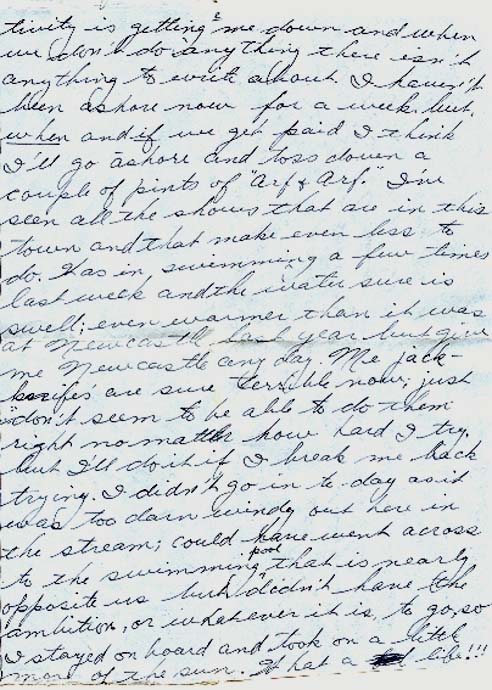 tivity is getting me down and when
we don't do anything there isn't
anything to write about. I haven't
been ashore now for a week but,
when and if we get paid I think
I'll go ashore and toss down a
couple of pints of "Arf & Arf." I've
seen all the shows that are in this
town and that make even less to
do. Was in swimming a few times
last week and the water sure is
swell; even warmer than it was
at Newcastle last year but give
me Newcastle any day. Me jack-
knifes are sure terrible now; just
don't seem to be able to do them
right no matter how hard I try.
but I'll do it if I break me back
trying. I didn't go in to-day as it
was too darn windy out here in
the stream; could have went across
to the swimming pool that is nearly
opposite us but didn't have the
ambition, or whatever it is, to go, so
I stayed on board and took on a little
more of the sun. What a life!!!